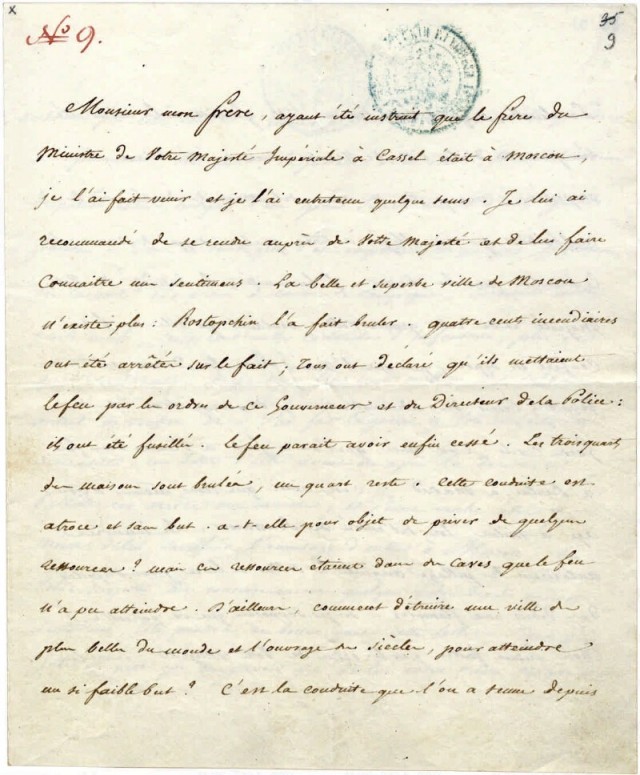 x
35
No 9.
9
Monsieur mon frere, ayant été instruit que le frere du
Ministre de Votre Majesté Impériale à Cassel était à Moscou,
je l'ai fait venir et je l'ai entretenu quelque tems. Je lui ai
recommandé de se rendre auprès de Votre Majesté et de lui faire
connaitre mes sentimens. La belle et superbe ville de Moscou
n'existe plus: Rostopchin l'a fait bruler. quatre cents incendiaires
ont été arrêtés sur le fait; Tous ont déclaré qu'ils mettaient
le feu par les ordres de ce Gouverneur et du Directeur de la Police:
ils ont été fusillés. le feu parait avoir enfin cessé. Les trois quarts
des maisons sont brulées, un quart reste. Cette conduite est
atroce et sans but. a-t-elle pour objet de priver de quelques
ressources? mais ces ressources étaient dans des caves que le feu
n'a pu atteindre. D'ailleurs, comment détruire une ville des
plus belles du monde et l'ouvrage des siècles, pour atteindre
un si faible but? C'est la conduite que l'on a tenue depuis